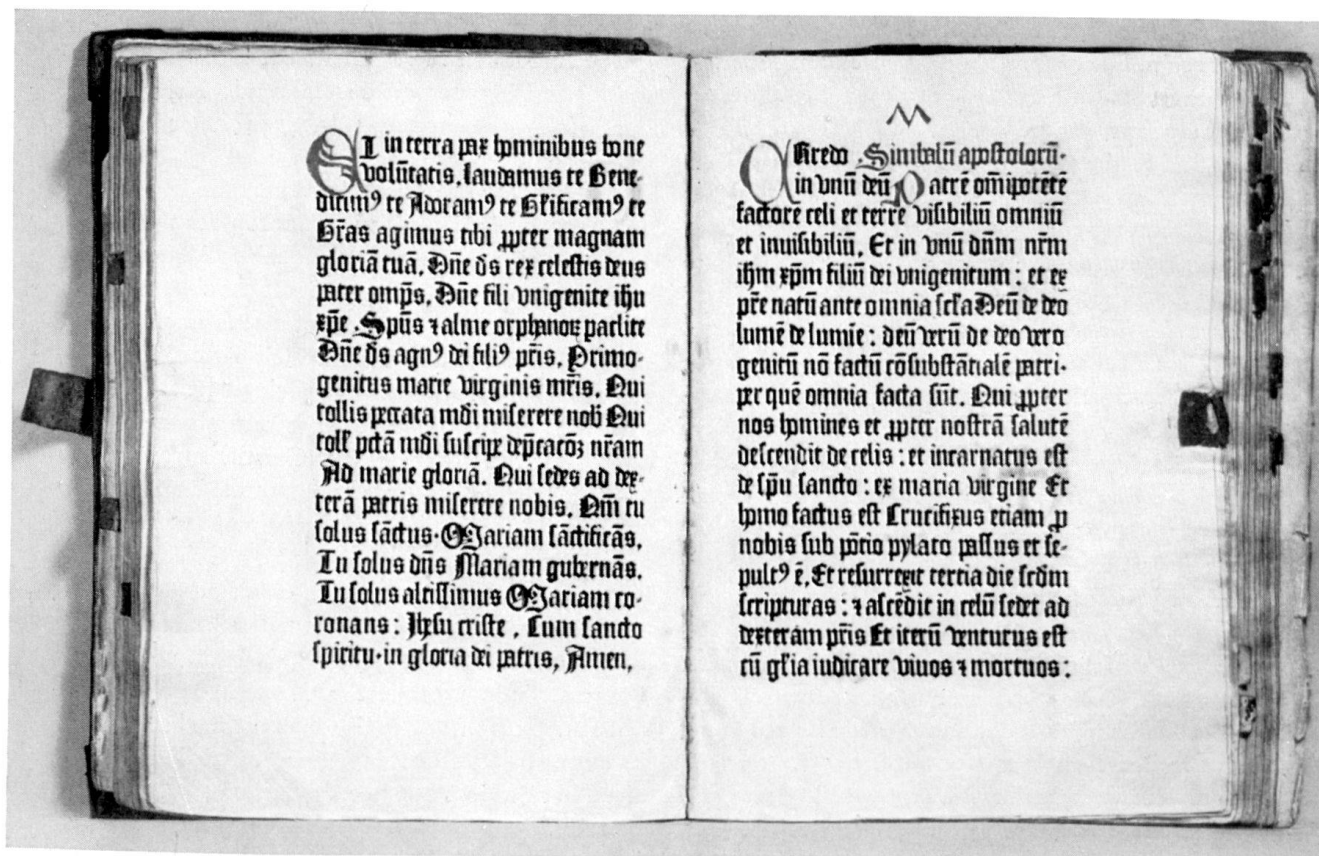 Et in terra pax hominibus bone
volūtatis. laudamus te Bene-
dicimꝰ te Adoramꝰ te Glīficamꝰ te
Gr̄as agimus tibi ꝓpter magnam
gloriā tuā. Dn̄e ds̄ rex celestis deus
pater omp̄s. Dn̄e fili vnigenite ih̄u
xp̄e. Sp̄us ⁊ alme orphanoꝝ paclite
Dn̄e ds̄ agnꝰ dei filiꝰ pr̄is. Primo-
genitus marie virginis mr̄is. Qui
tollis peccata mdi miserere nob̄ Qui
toll̄ pctā mdi suscipe dep̄cacōꝫ nr̄am
Ad marie gloriā. Qui sedes ad dex-
terā patris miserere nobis. Qm̄ tu
solus sāctus. Mariam sāctificās.
Tu solus dn̄s Mariam gubernās.
Tu solus altissimus Mariam co-
ronans: Ihesu criste. Cum sancto
spiritu in gloria dei patris, Amen,
M
Kredo. Simbalū apostolorū.
in vnū deū Patrē omīpotētē
factorē celi et terre visibiliū omniū
et inuisibiliū. Et in vnū dn̄m nr̄m
ih̄m xp̄m filiū dei vnigenitum: et ex
pr̄e natū ante omnia scl̄a Deū de deo
lumē de lumie: deū verū de deo vero
genitū nō factū cōsubstātialē patri-
per quē omnia facta sūt. Qui ꝓpter
nos homines et ꝓpter nostrā salutē
descendit de celis: et incarnatus est
de sp̄u sancto: ex maria virgine Et
homo factus est Crucifixus etiam ꝓ
nobis sub pōtio pylato passus et se-
pultꝰ ē. Et resurrexit tertia die scdm̄
scripturas: ⁊ ascēdit in celū sedet ad
dexteram pr̄is Et iterū venturus est
cū gl̄ia iudicare viuos ⁊ mortuos: